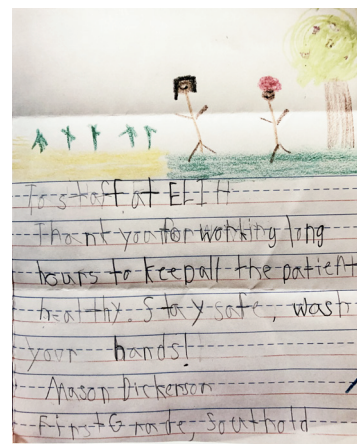 To staff at ELIH
Thank you for working long
hours to keep all the patient
healthy. Stay safe, wash
your hands!
Mason Dickerson
First Grade, Southold